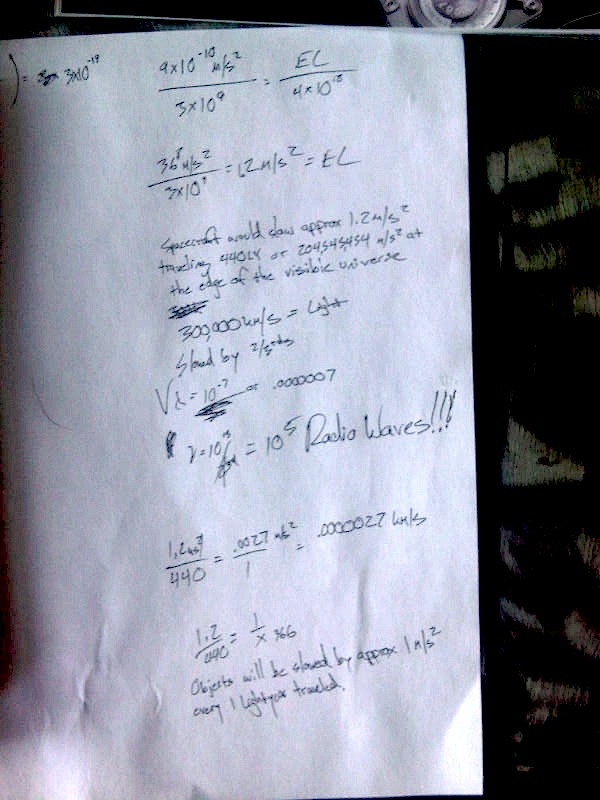 ) = 3x10⁻¹⁹
9x10⁻¹⁰ m/s² / 3x10⁹ = EL / 4x10¹⁸
36⁸ m/s² / 3x10⁹ = 1.2 m/s² = EL
Spacecraft would slow approx 1.2 m/s²
traveling 440LY or 204545454 m/s² at
the edge of the visible universe
300,000 km/s = Light
Slowed by
λ = 10⁻⁷ or .0000007
= 10⁵ Radio Waves!!!
/ 440 = .0027 m/s² / 1 = .0000027 km/s
1.2 / 440 = 1 / x 366
Objects will be slowed by approx 1 m/s²
every 1 lightyear traveled.